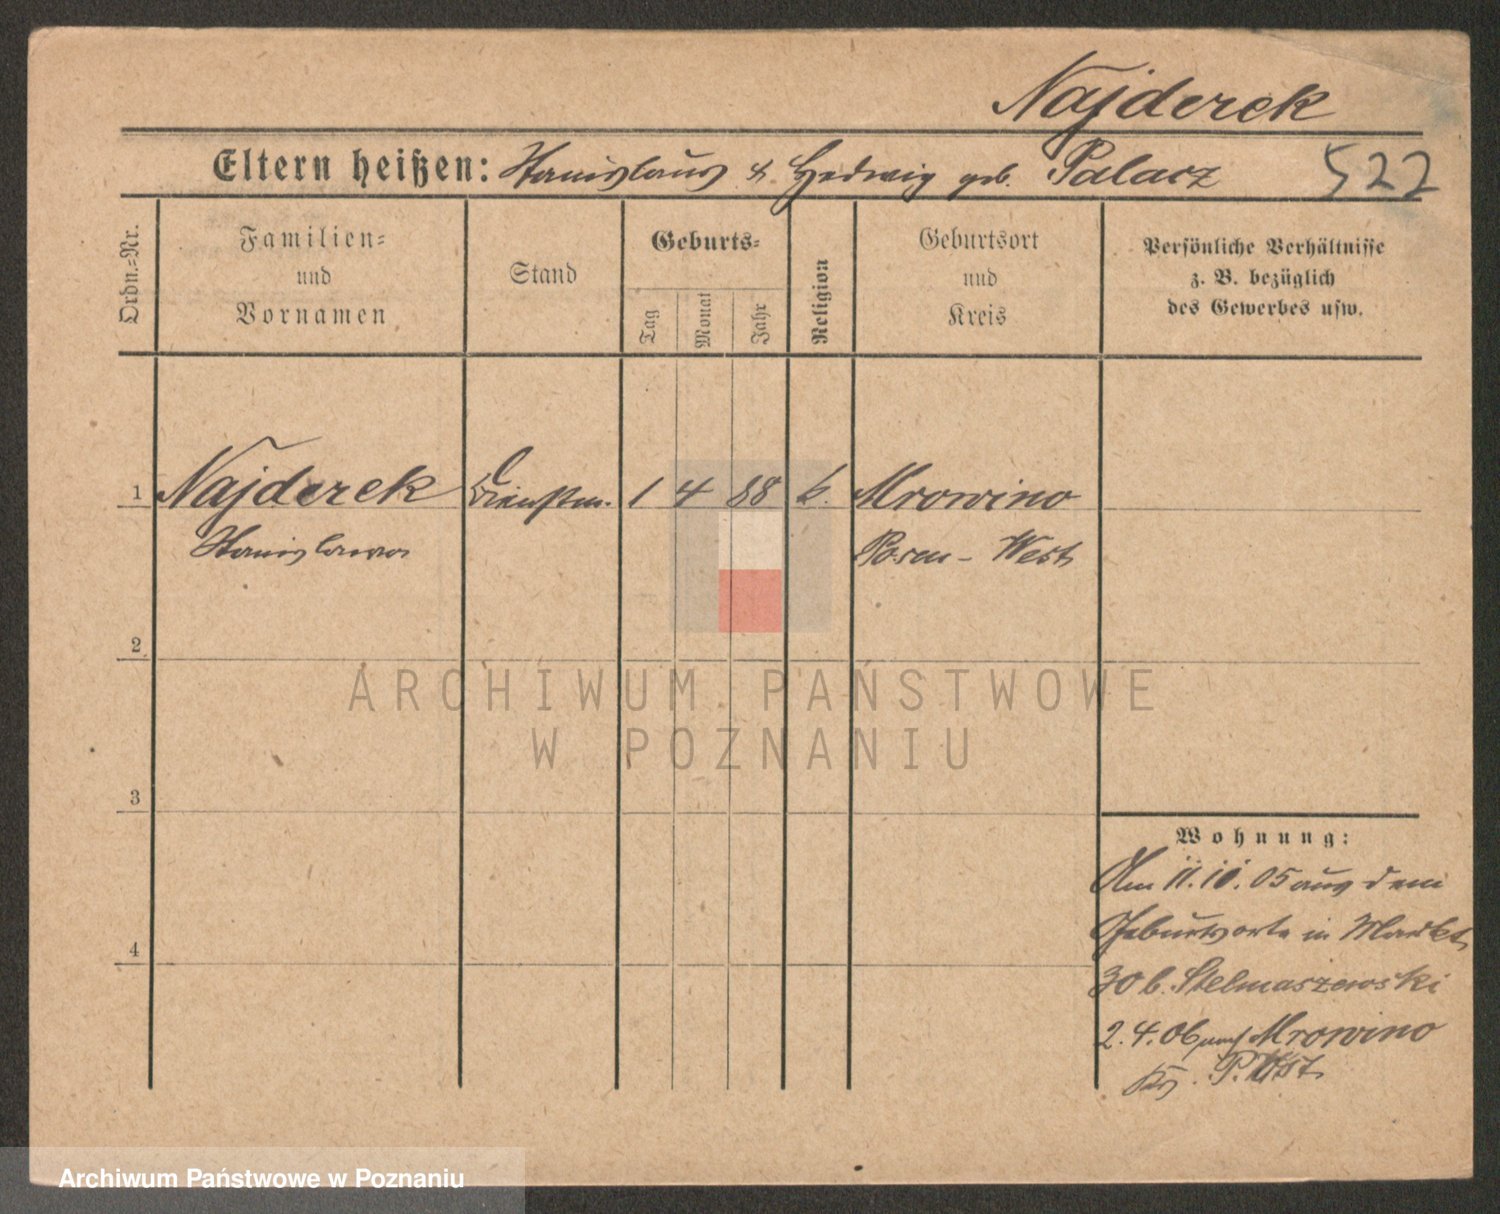 Najderek
Eltern heißen: Stanislaus & Hedwig geb. Palacz 522
Ordn.-Nr.
Familien-
und
Vornamen
Stand
Geburts-
Tag
Monat
Jahr
Religion
Geburtsort
und
Kreis
Persönliche Verhältnisse
z. B. bezüglich
des Gewerbes usw.
1 Najderek Dienstm. 1 4 88 k. Mrowino
Stanislawa Posen-West
2
ARCHIWUM PAŃSTWOWE
W POZNANIU
3
Wohnung:
Am 11.10.05 aus dem
Geburtsorte in Markt
30 b. Stelmaszewski
4
2.4.06 nach Mrowino
Krs. P. West
Archiwum Państwowe w Poznaniu